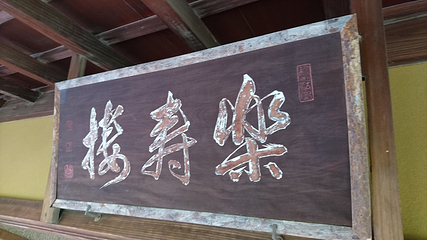 樂壽樓